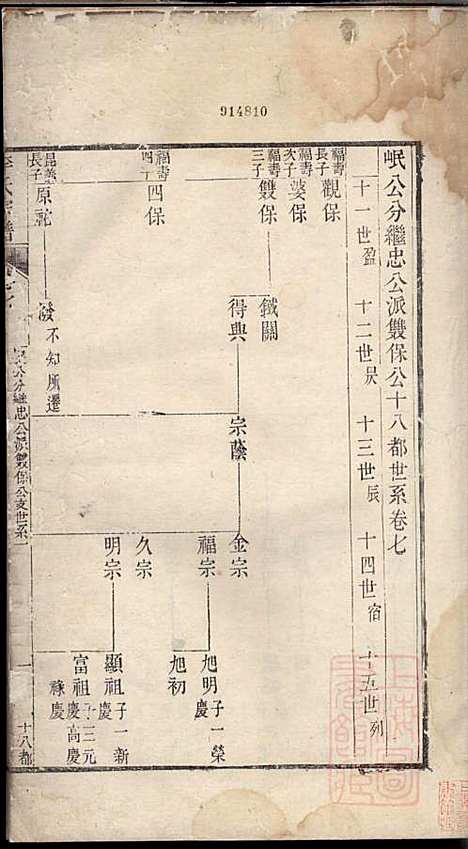 914810
岷公分繼忠公派雙保公十八都世系卷七
十一世盈 十二世昃 十三世辰 十四世宿 十五世列
福壽長子 觀保
福壽次子 婆保
福壽三子 雙保
鐵關
得興
宗蔭
金宗
福宗
旭明 子一榮慶
旭初
福壽四子 四保
久宗
明宗
顯祖 子一新
富祖 子三元慶高慶祿慶
昆義長子 原駝
發不知所遷
岷公分繼忠公派雙保公支世系
一
十八都